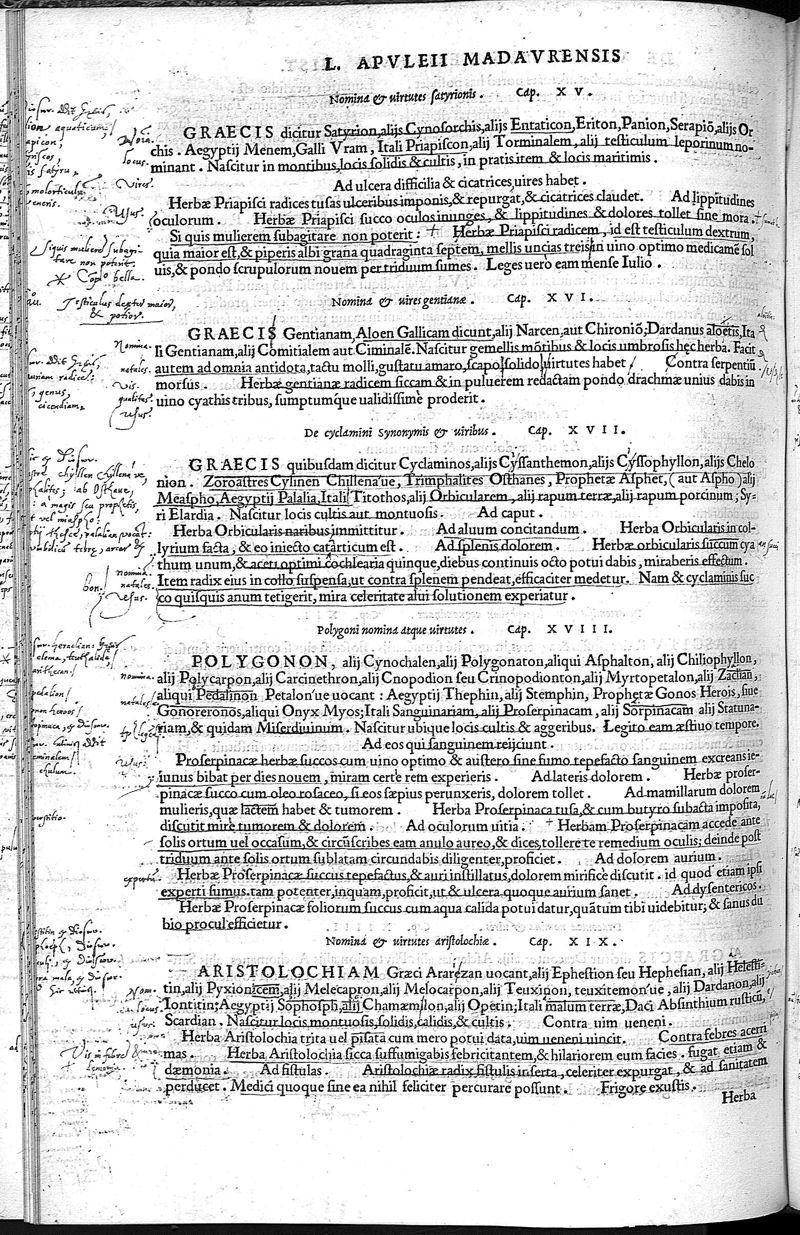 L. APVLEII MADAVRENSIS
Nomina & uirtutes satyrionis. Cap. XV.
GRAECIS dicitur Satyrion, alijs Cynosorchis, alijs Entaticon, Eriton, Panion, Serapiō, alijs Or
chis. Aegyptij Menem, Galli Vram, Itali Priapiscon, alij Torminalem, alij testiculum leporinum no-
minant. Nascitur in montibus, locis solidis & cultis, in pratis item & locis maritimis.
Ad ulcera difficilia & cicatrices, uires habet.
Herbæ Priapisci radices tusas ulceribus imponis, & repurgat, & cicatrices claudet. Ad lippitudines
oculorum. Herbæ Priapisci succo oculos inunges, & lippitudines & dolores tollet sine mora.
Si quis mulierem subagitare non poterit: Herbæ Priapisci radicem, id est testiculum dextrum,
quia maior est, & piperis albi grana quadraginta septem, mellis uncias treis in uino optimo medicamē sol
uis, & pondo scrupulorum nouem per triduum sumes. Leges uerò eam mense Iulio.
Siquis mulierē subagi-
tare non poterit.
Testiculus dexter maior,
& potior.
Nomina & uires gentianæ. Cap. XVI.
GRAECIS Gentianam, Aloen Gallicam dicunt, alij Narcen, aut Chironiō, Dardanus aloëtis, Ita
li Gentianam, alij Comitialem aut Ciminalē. Nascitur gemellis mōtibus & locis umbrosis hęc herba. Facit
autem ad omnia antidota, tactu molli, gustatu amaro, scapo solido, uirtutes habet. Contra serpentiū
morsus. Herbæ gentianæ radicem siccam & in puluerem redactam pondo drachmæ unius dabis in
uino cyathis tribus, sumptumque ualidissimè proderit.
De cyclamini Synonymis & uiribus. Cap. XVII.
GRAECIS quibusdam dicitur Cyclaminos, alijs Cyssanthemon, alijs Cyssophyllon, alijs Chelo
nion. Zoroastres Cysinen Chillenaʼue, Trimphalites Osthanes, Prophetæ Asphet, (aut Aspho) alij
Measpho, Aegyptij Palalia, Itali Titothos, alij Orbicularem, alij rapum terræ, alij rapum porcinum; Sy-
ri Elardia. Nascitur locis cultis aut montuosis. Ad caput.
Herba Orbicularis naribus immittitur. Ad aluum concitandum. Herba Orbicularis in col-
lyrium facta, & eo iniecto catarticum est. Ad splenis dolorem. Herbæ orbicularis succum cya
thum unum, & aceti optimi cochlearia quinque, diebus continuis octo potui dabis, miraberis effectum.
Item radix eius in collo suspensa, ut contra splenem pendeat, efficaciter medetur. Nam & cyclaminis suc
co quisquis anum tetigerit, mira celeritate alui solutionem experiatur.
Polygoni nomina atque uirtutes. Cap. XVIII.
POLYGONON, alij Cynochalen, alij Polygonaton, aliqui Asphalton, alij Chiliophyllon,
alij Polycarpon, alij Carcinethron, alij Cnopodion seu Crinopodionton, alij Myrtopetalon, alij Zachan,
aliqui Pedalinon Petalonʼue uocant: Aegyptij Thephin, alij Stemphin, Prophetæ Gonos Herois, siue
Gonoreronos, aliqui Onyx Myos; Itali Sanguinariam, alij Proserpinacam, alij Sorpinacam alij Statuna-
riam, & quidam Miserdiuinum. Nascitur ubique locis cultis & aggeribus. Legito eam æstiuo tempore.
Ad eos qui sanguinem reijciunt.
Proserpinacæ herbæ succos cum uino optimo & austero sine fumo tepefacto sanguinem excreans ie-
iunus bibat per dies nouem, miram certè rem experieris. Ad lateris dolorem. Herbæ proser-
pinacæ succo cum oleo rosaceo, si eos sæpius perunxeris, dolorem tollet. Ad mamillarum dolorem
mulieris, quæ lactem habet & tumorem. Herba Proserpinaca tusa, & cum butyro subacta imposita,
discutit mirè tumorem & dolorem. Ad oculorum uitia. Herbam Proserpinacam accede ante
solis ortum uel occasum, & circūscribes eam anulo aureo, & dices, tollere te remedium oculis; deinde post
triduum ante solis ortum sublatam circundabis diligenter, proficiet. Ad dolorem aurium.
Herbæ Proserpinacæ succus tepefactus, & auri instillatus, dolorem mirificè discutit. id quod etiam ipsi
experti sumus. tam potenter, inquam, proficit, ut & ulcera quoque aurium sanet. Ad dysentericos.
Herbæ Proserpinacæ foliorum succus cum aqua calida potui datur, quātum tibi uidebitur; & sanus du
bio procul efficietur.
Nomina & uirtutes aristolochiæ. Cap. XIX.
ARISTOLOCHIAM Græci Ararezan uocant, alij Ephestion seu Hephesian, alij Helesti-
tin, alij Pyxionicem, alij Melecapron, alij Melocarpon, alij Teuxinon, teuxitemonʼue, alij Dardanon, alij
Iontitin: Aegyptij Sophosph, alij Chamæmilon, alij Opetin; Itali malum terræ, Daci Absinthium rusticū,
Scardian. Nascitur locis montuosis, solidis, calidis, & cultis. Contra uim ueneni.
Herba Aristolochia trita uel pisata cum mero potui data, uim ueneni uincit. Contra febres acerri
mas. Herba Aristolochia sicca suffumigabis febricitantem, & hilariorem eum facies. fugat etiam &
dæmonia. Ad fistulas. Aristolochiæ radix fistulis inserta, celeriter expurgat, & ad sanitatem
perducet. Medici quoque sine ea nihil feliciter percurare possunt. Frigore exustis.
Herba